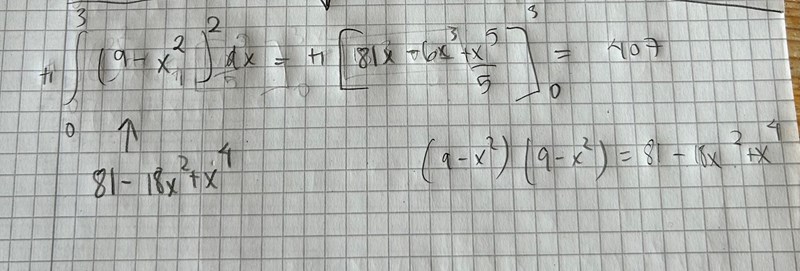 π ∫₀³ (9 - x²)² dx = π [81x - 6x³ + x⁵/5]₀³ = 407
↑
81 - 18x² + x⁴ (9 - x²) (9 - x²) = 81 - 18x² + x⁴